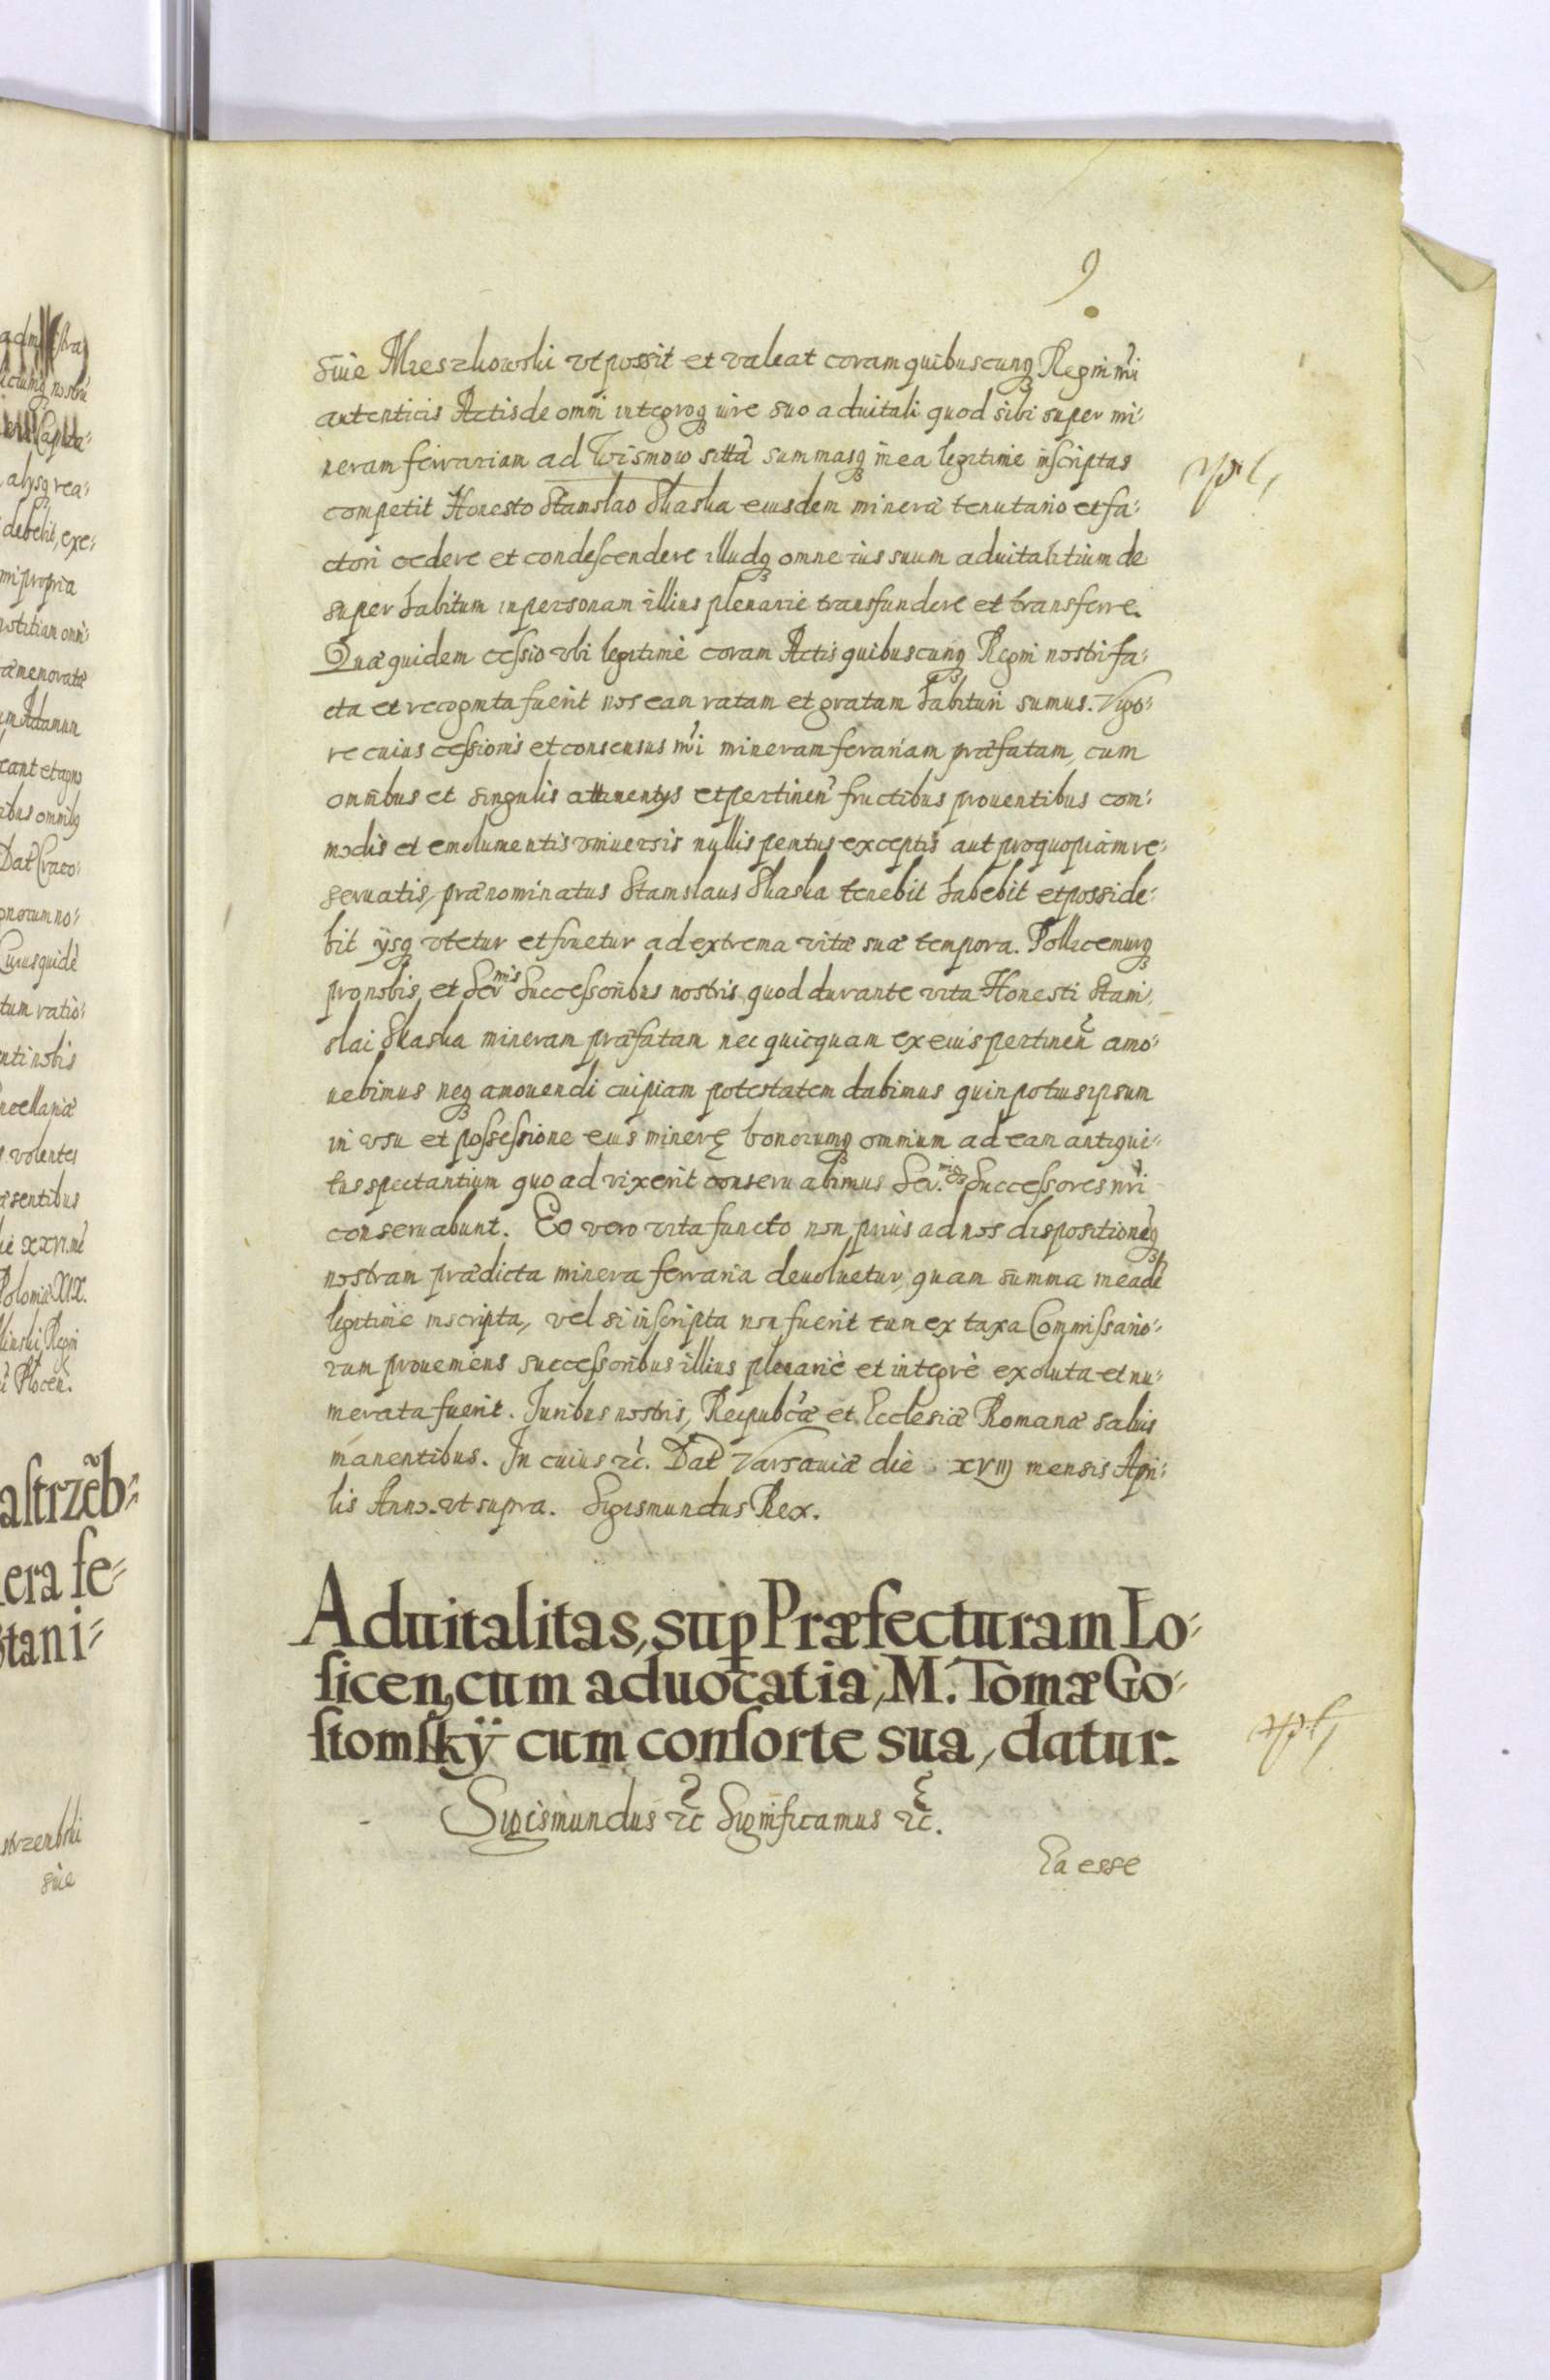 9
siue Mieszkowski vt possit et valeat coram quibuscunq Regni nri
autenticis Actis de omni integroq iure suo aduitali quod sibi super mi:
neram ferrariam ad Wismow sitta summasq in ea legitime inscriptas
competit Honesto Stanislao Skaska eiusdem mineræ tenutario et fa:
ctori cedere et condescendere illudq omne ius suum aduitalitium de
super habitum in personam illius plenarie transfundere et transferre.
Quæ quidem cessio vbi legitimè coram Actis quibuscunq Regni nostri fa:
cta et recognita fuerit nos eam ratam et gratam habituri sumus. Vigo:
re cuius cessionis et consensus nri mineram ferariam præfatam, cum
omnibus et singulis attinentijs et pertinen fructibus prouentibus com:
modis et emolumentis vniuersis nullis penitus exceptis aut pro quopiam re:
seruatis, prænominatus Stanislaus Skaska tenebit habebit et posside:
bit ijsq vtetur et fruetur ad extrema vitæ suæ tempora. Pollicemurq
pro nobis et Ser^mis Successoribus nostris quod durante vita Honesti Stani
slai Skaska mineram præfatam nec quicquam ex eius pertinen amo:
uebimus neq amouendi cuipiam potestatem dabimus quin potius ipsum
in vsu et possessione eius mineræ bonorumq omnium ad eam antiqui:
tus spectantium quo ad vixerit conseruabimus Ser.^miq Successores nri
conseruabunt. Eo vero vita functo non prius ad nos dispositioneq
nostram prædicta minera ferraria deuoluetur, quam summa in eade
legitime inscripta, vel si inscripta non fuerit tum ex taxa Commissario:
rum proueniens successoribus illius plenariè et integrè exoluta et nu:
merata fuerit. Iuribus nostris, Reipublcæ et Ecclesiæ Romanæ saluis
manentibus. In cuius rc. Dat Varsauiæ die xviij mensis Apri:
lis Anno vt supra. Sigismundus Rex.
Aduitalitas, sup Præfecturam Lo:
sicen, cum aduocatia, M. Tomæ Go:
stomskÿ cum consorte sua, datur.
Sigismundus rc Significamus rc.
Ea esse